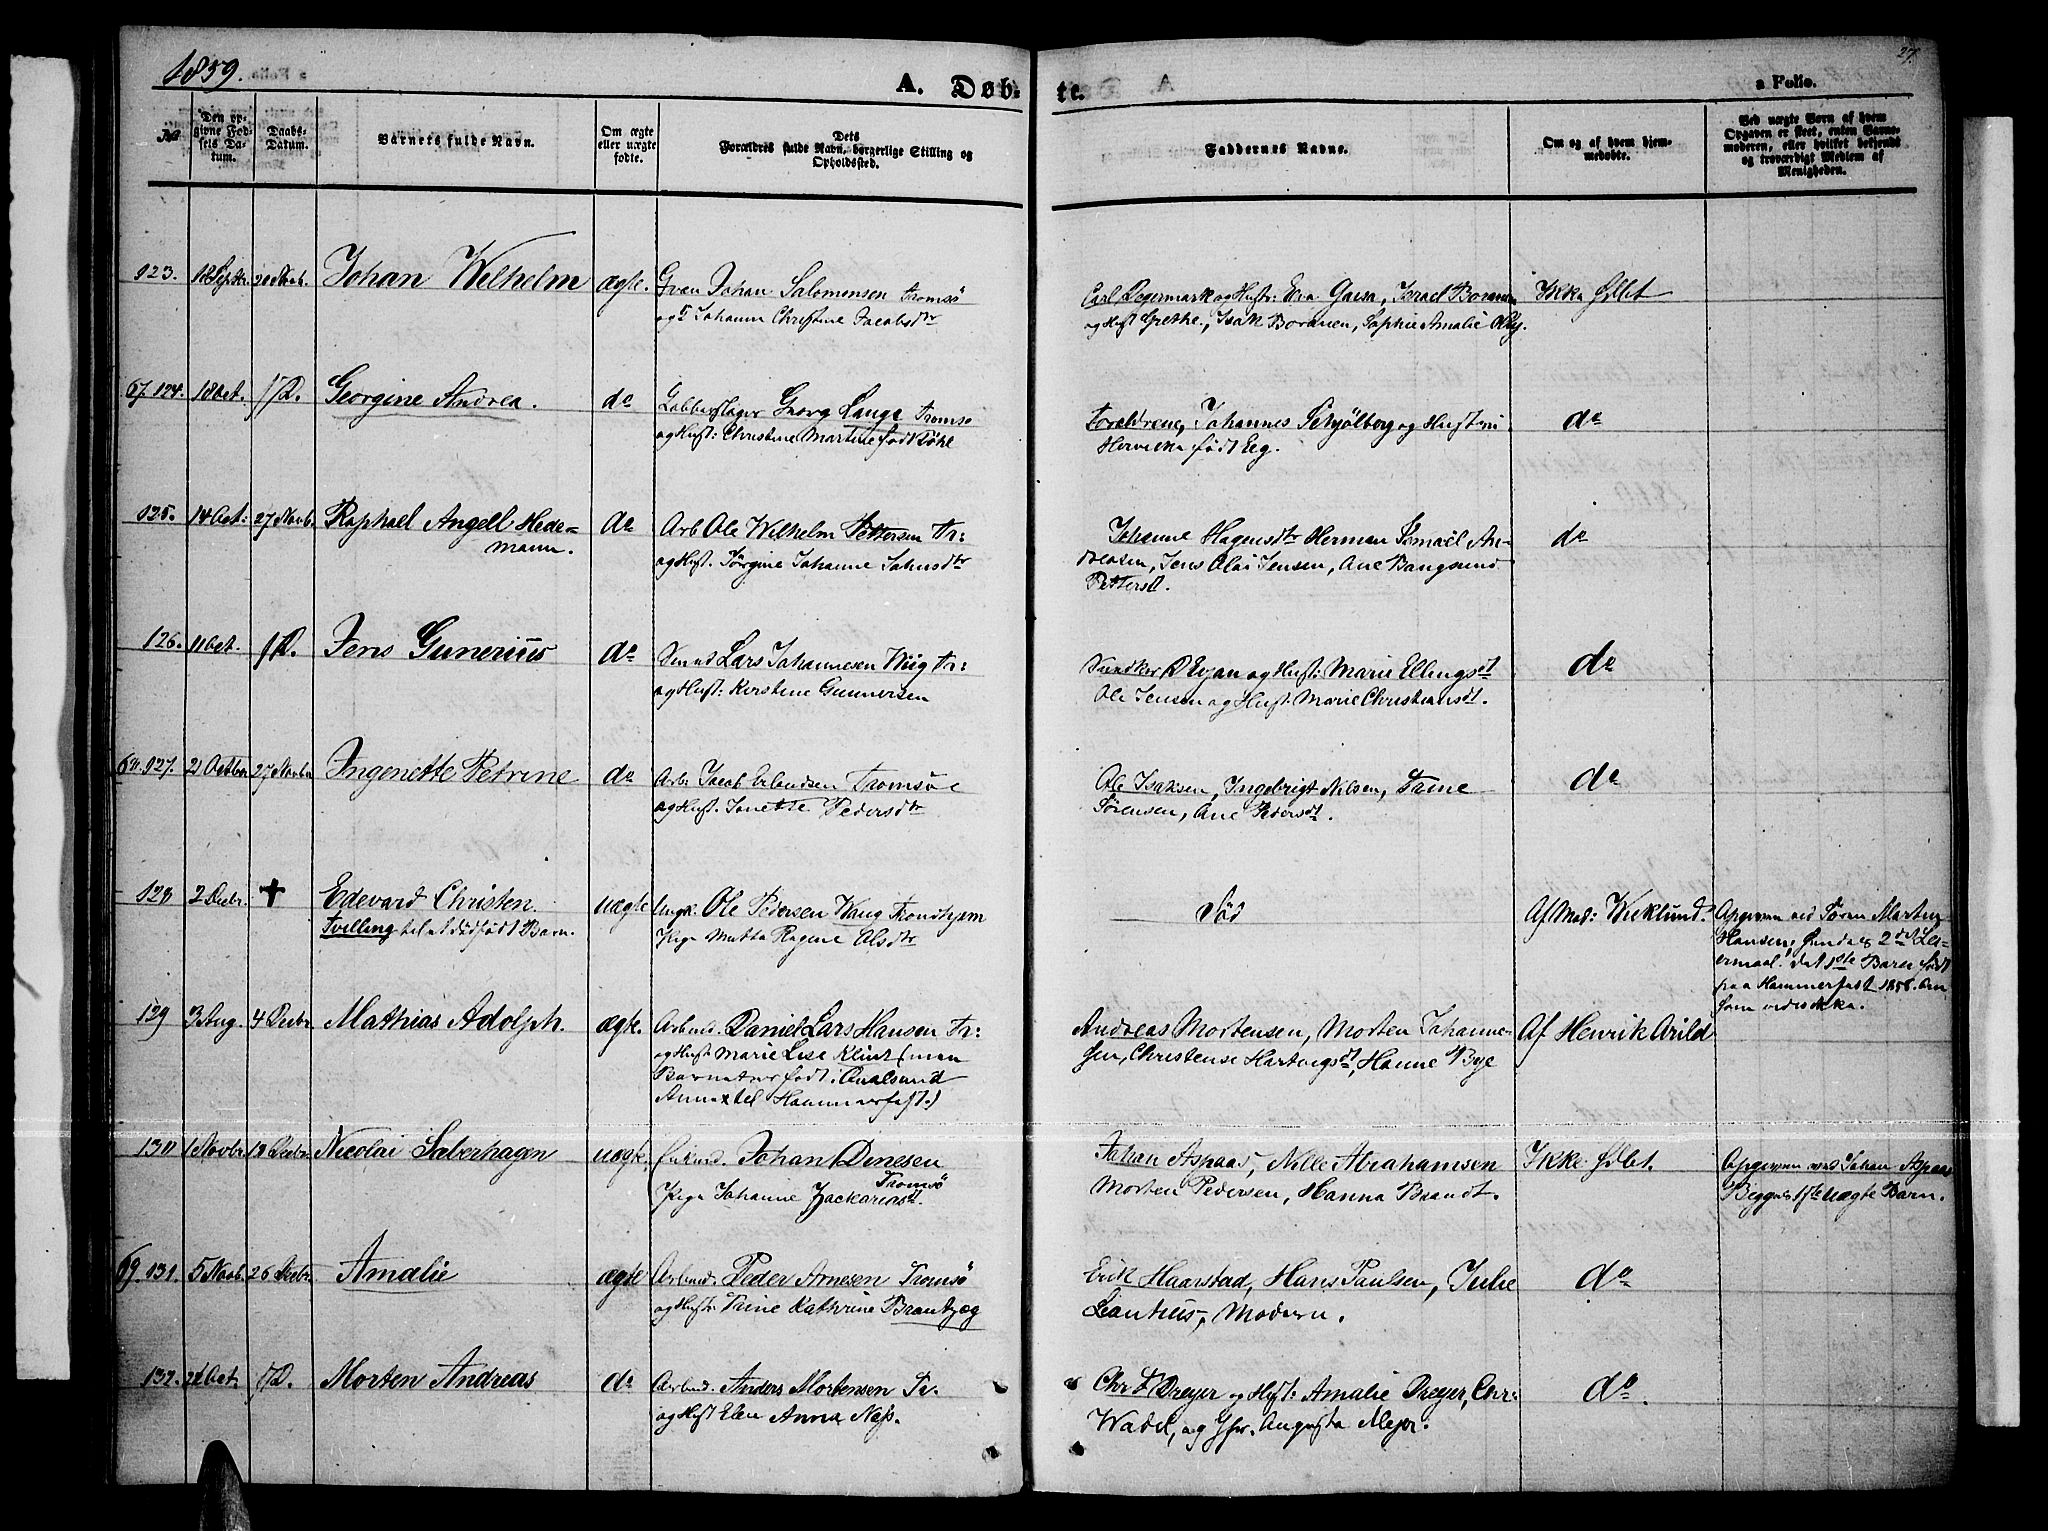 1859.
27.
A. Døb-
te.
a Folio.
No
Den op-
givne Fød-
sels Da-
tum.
Daabs-
Datum.
Barnets fulde Navn.
Om ægte
eller uægte
fødte.
Dets
Forældres fulde Navn, borgerlige Stilling og
Opholdssted.
Faddernes Navne.
Om og af hvem hjem-
medøbte.
Ved uægte Børn af hvem
Opgaven er skeet, enten Barne-
moderen, eller hvilket bekjendt
og troværdigt Medlem af
Menigheden.
123. 18 Septbr. 20 Novb. Johan Wilhelm ægte. Qven Johan Salomonsen Tromsö
og Johanna Christine Jacobsdtr
Carl Degermark og Hustr: Eva Gaesa, Israel Boranen
og Hust Grethe, Isak Boranen, Sophie Amalie
Ikke øblet
67. 124. 18 Oct. D. Georgine Andrea. do Gjørg Lange Tromsö
og Hust: Christine Martine født
Forældrene, Johannes Schjølberg og Hustru
født Eeg.
do
125. 14 Oct: 27 Novb. Raphael Angell Hede=
mann.
do Arb Ole Wilhelm Pettersen Tr:
og Hust. Jørgine Johanne Johnsdtr
Johanne Hagensdtr Herman Ismael An-
dreasen, Jens Olai Jensen, Ane Bangsund
Pettersdt.
do
126. 11 Oct. D. Jens Gunerius do Lars Johannesen Wiig Tr:
og Hust: Kerstine Gunnersen
og Hust: Marie Ellingsdt
Ole Jensen og Hust. Marie Christiansdt.
do
68. 127. 21 Octbr 27 Novbr Ingeniette Petrine do Arb: Jacob Erlandsen Tromsöe
og Hust. Jonette Pedersdtr
Ole Isaksen, Ingebrigt Nilsen, Trine
Sörensen, Ane Pedersdt.
do
128 2 Decbr. + Edevard Christen
Tvilling til et dødfødt Barn.
uægte Ungk. Ole Pedersen Waag Trondhjem
Pige Mette Regine Olsdtr
Død
Af Mad: Wicklund.
Opgiven ved Søren Martin
Hansen, 2det Lei-
ermaal. det 1ste Barn født
paa Hammerfest 1858. Om
ham vides ikke.
129 3 Aug. 4 Decbr Mathias Adolph. ægte. Arbmd. Daniel Lars Hansen Tr:
og Hust. Marie Lise Klint (men
Barnet er født i Qualsund
Annex til Hammerfest.)
Andreas Mortensen, Morten Johanne-
sen, Christense Hartvigsdt, Hanne Bye
Af Henrik Arild
130 1 Novbr 18 Decbr. Nicolai Saberhagen uægte. Enkmd. Johan Denesen
Tromsö
Pige Johanne Zackariasdt.
Johan Aspaas, Nille Abrahamsen
Morten Pedersen, Hanna Brandt.
Ikke øblet.
Opgiven ved Johan Aspaas
Begges 1ste uægte Barn.
69. 131. 5 Novb. 26 Decbr Amalie ægte Arbmd. Peder Arnesen Tromsö
og Hustr Trine Kathrine Brantzæg
Erik Haarstad, Hans Paulsen, Julie
Leantius, Moderen.
do
132. 22 Oct. D. Morten Andreas do Arbmd. Anders Mortensen Tr.
og Hust Elen Anna Næss.
Chr L Dreyer og Hust: Amalie Dreyer, Chr.
Wadel, og Jfr. Augusta Mejer.
do.